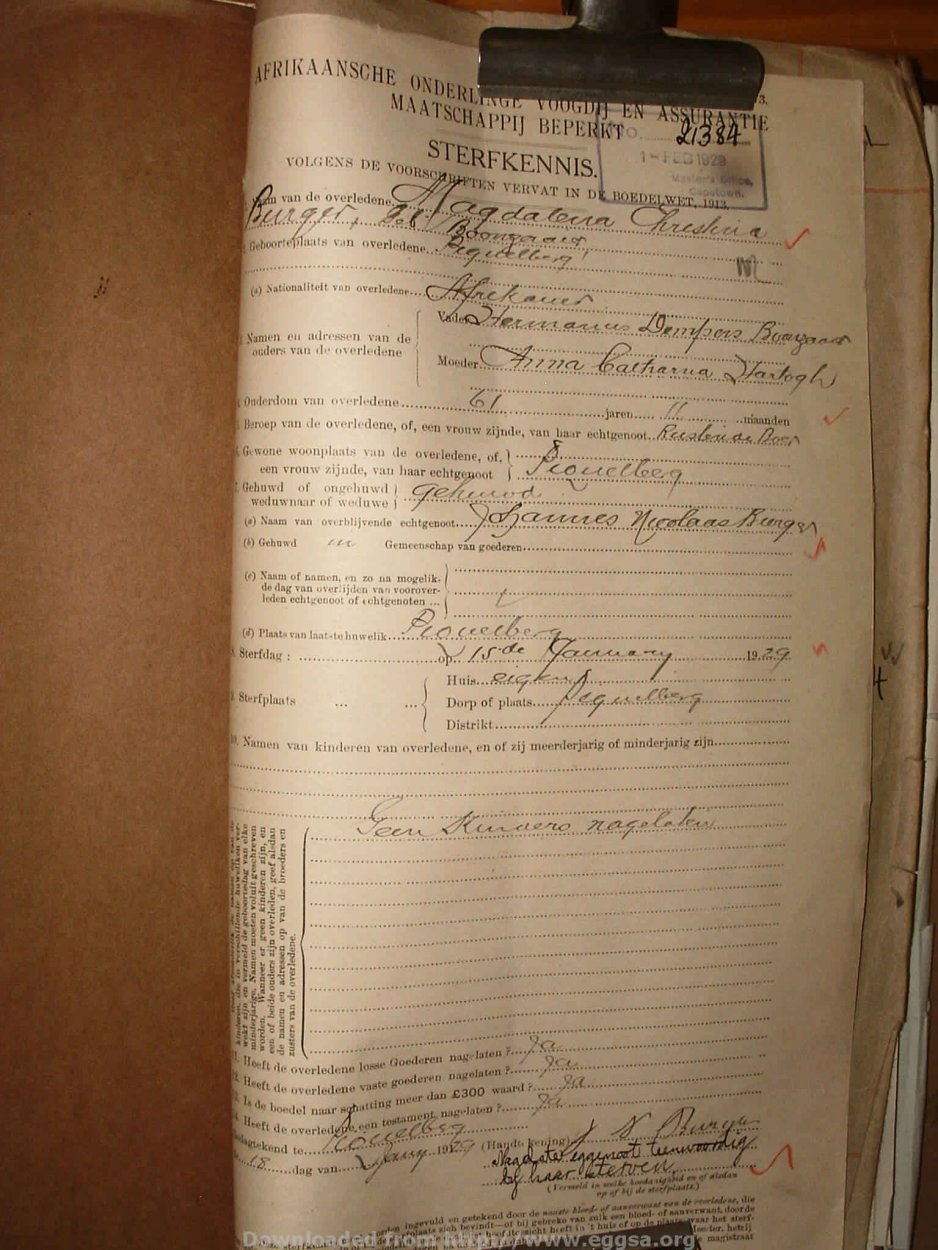 AFRIKAANSCHE ONDERLINGE VOOGDIJ EN ASSURANTIE
MAATSCHAPPIJ BEPERKT
NO. 21384
1 - FEB 1929
Master's Office,
Capetown.
STERFKENNIS.
VOLGENS DE VOORSCHRIFTEN VERVAT IN DE BOEDELWET, 1913.
Naam van de overledene Magdalena Christina
Burger, geb. Boonzaaier
Geboorteplaats van overledene Piquetberg
(a) Nationaliteit van overledene Afrikaner
Namen en adressen van de ouders van de overledene
Vader Hermanus Dempers Boonzaaier
Moeder Anna Catharina Hartogh
Ouderdom van overledene 61 jaren 11 maanden
Beroep van de overledene, of, een vrouw zijnde, van haar echtgenoot Rustende Boer
Gewone woonplaats van de overledene, of,
een vrouw zijnde, van haar echtgenoot Piquetberg
Gehuwd of ongehuwd
weduwnaar of weduwe gehuwd
(a) Naam van overblijvende echtgenoot Johannes Nicolaas Burger
(b) Gehuwd in Gemeenschap van goederen
(c) Naam of namen, en zo na mogelik,
de dag van overlijden van vooroverleden echtgenoot of echtgenoten ...
(d) Plaats van laatste huwelik Piquetberg
8. Sterfdag : op 15de January 1929
9. Sterfplaats ... ...
Huis eigen
Dorp of plaats Piquetberg
Distrikt
10. Namen van kinderen van overledene, en of zij meerderjarig of minderjarig zijn
Geen Kinders nagelaten
kinderen, die in verschillende huweliken ver-
wekt zijn en vermeld de geboortedag van elke
minderjarige. Namen moeten voluit geschreven
worden. Wanneer er geen kinderen zijn, en
een of beide ouders zijn overleden, geef alsdan
de namen en adressen op van de broeders en
zusters van de overledene.
11. Heeft de overledene losse Goederen nagelaten ? Ja
12. Heeft de overledene vaste goederen nagelaten ? Ja
13. Is de boedel naar schatting meer dan £300 waard ? Ja
14. Heeft de overledene een testament nagelaten ? Ja
Gedagtekend te Piquetberg
18 dag van Jany 1929 (Handtekening) J N Burger
Nagelate eggenoot teenwoordig
by haar sterven.
(Vermeld in welke hoedanigheid en of alsdan
op of bij de sterfplaats.)
ingevuld en getekend door de naaste bloed- of aanverwant van de overledene, die
Downloaded from http://www.eggsa.org